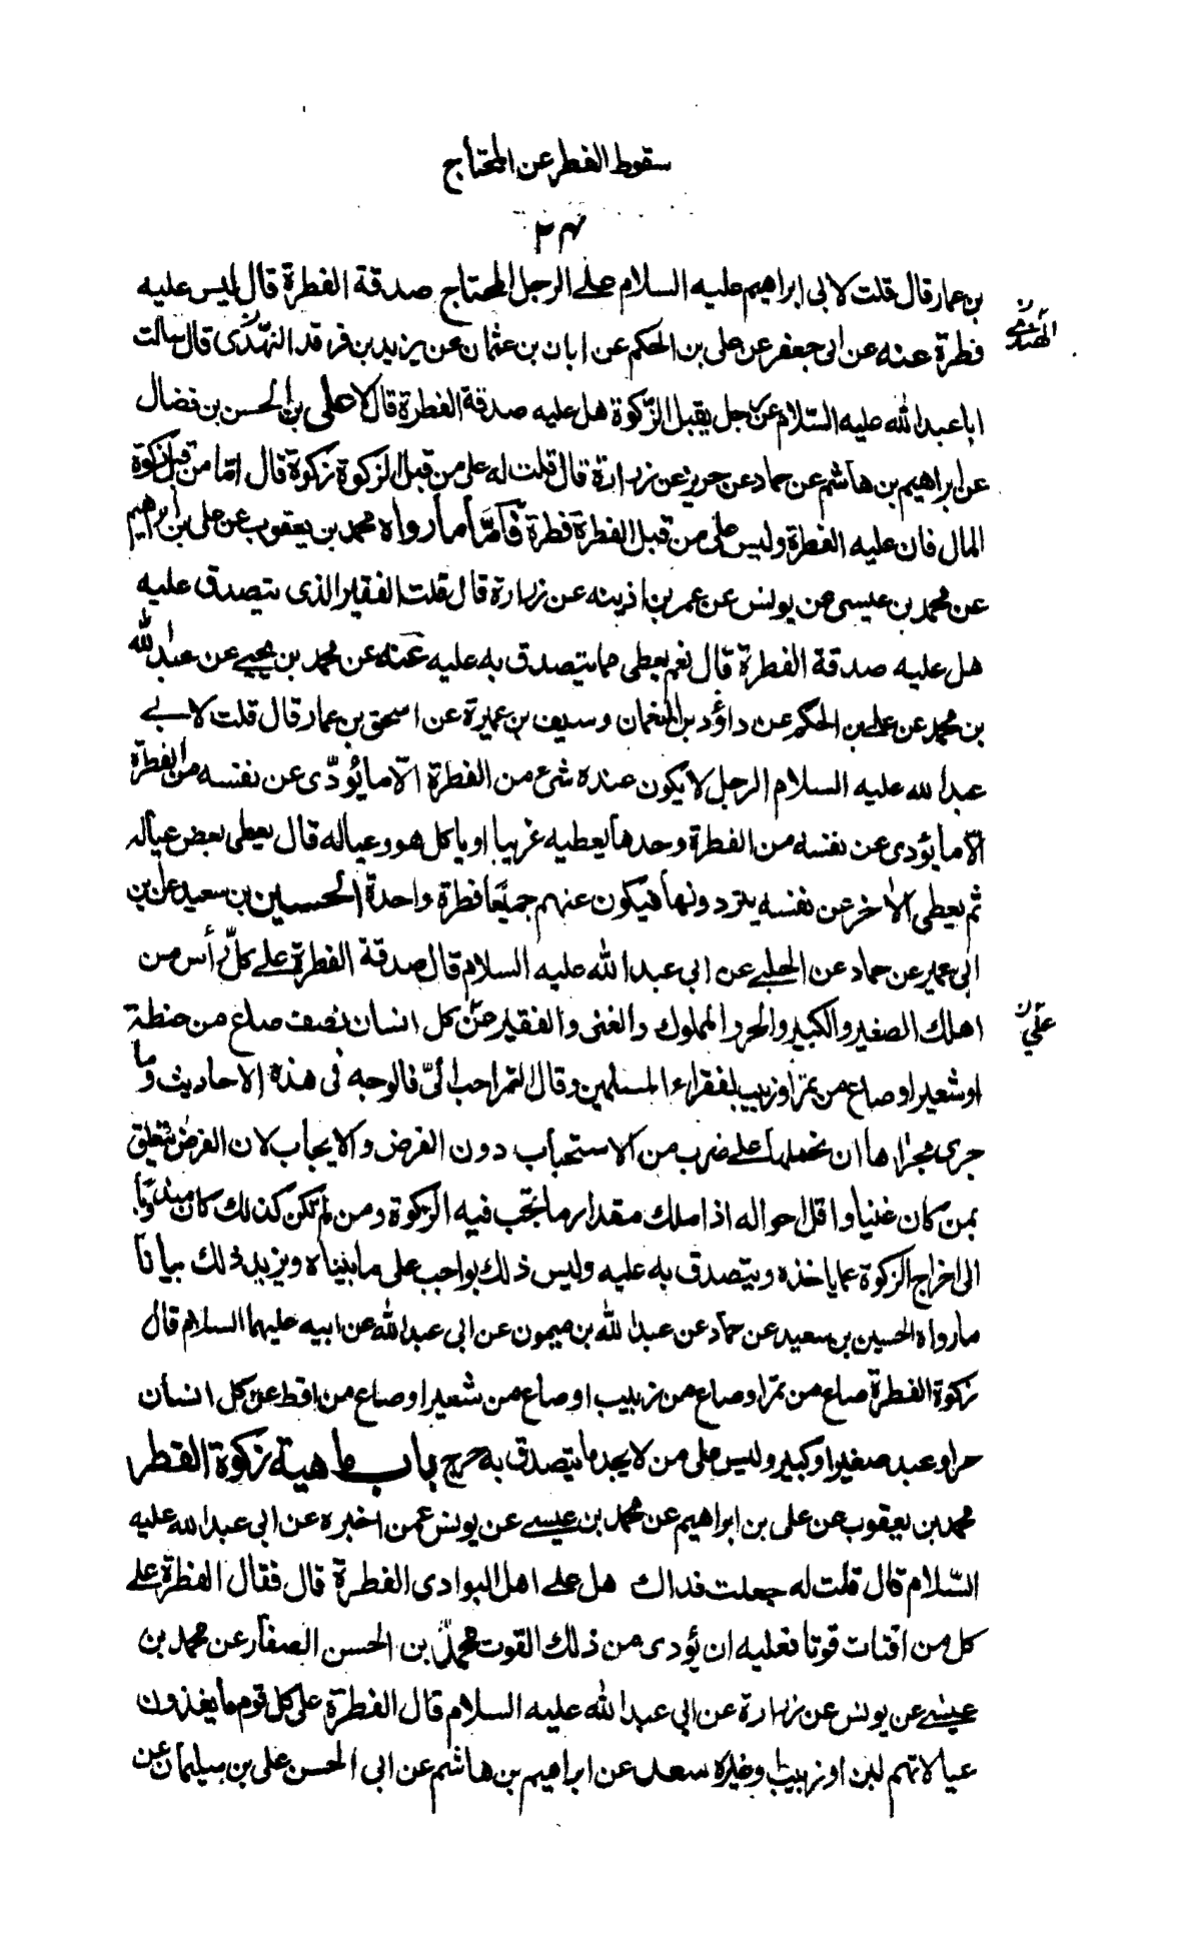 سقوط الفطر عن المحتاج
٢٤
بن عمار قال قلت لابى ابراهيم عليه السلام على الرجل المحتاج صدقة الفطرة قال ليس عليه
فطرة عنه عن ابى جعفر عن على بن الحكم عن ابان بن عثمان عن يزيد بن فرقد النهدى قال سالت
ابا عبدالله عليه السلام عن رجل يقبل الزكوة هل عليه صدقة الفطرة قال لا على بن الحسن بن فضال
عن ابراهيم بن هاشم عن حماد عن حريز عن زرارة قال قلت له على من قبل الزكوة زكوة قال امّا من قبل زكوة
المال فان عليه الفطرة وليس على من قبل الفطرة فطرة فامّا ما رواه محمد بن يعقوب عن على بن ابراهيم
عن محمد بن عيسى عن يونس عن عمر بن اذينه عن زرارة قال قلت الفقير الذى يتصدق عليه
هل عليه صدقة الفطرة قال نعم يعطى مما يتصدق به عليه عنه عن محمد بن يحيى عن عبدالله
بن محمد عن على بن الحكم عن داؤد بن النعمان وسيف بن عميرة عن اسحق بن عمار قال قلت لابى
عبدالله عليه السلام الرجل لا يكون عنده شئ من الفطرة الّا ما يؤدّى عن نفسه من الفطرة
الّا ما يؤدى عن نفسه من الفطرة وحدها يعطيه غريبا او ياكل هو وعياله قال يعطى بعض عياله
ثم يعطى الاخر عن نفسه يتردونها فيكون عنهم جميعًا فطرة واحدة الحسين بن سعيد عن بن
ابى عمير عن حماد عن الحلبى عن ابى عبدالله عليه السلام قال صدقة الفطرة على كلّ رأس من
اهلك الصغير والكبير والحر والمملوك والغنى والفقير عن كل انسان نصف صاع من حنطة
او شعير او صاع من تمر او زبيب لفقراء المسلمين وقال التمر احب الىّ فالوجه فى هذه الاحاديث وما
جرى مجراها ان نحملها على ضرب من الاستحباب دون الفرض والايجاب لان الفرض يتعلق
بمن كان غنيا واقل حواله اذا ملك مقدار ما يجب فيه الزكوة ومن لم تكن كذلك كان مندوبًا
الى اخراج الزكوة عما ياخذه ويتصدق به عليه وليس ذلك بواجب على ما بيناه ويزيد ذلك بيانا
ما رواه الحسين بن سعيد عن حماد عن عبدالله بن ميمون عن ابى عبدالله عن ابيه عليهما السلام قال
زكوة الفطرة صاع من تمر او صاع من زبيب او صاع من شعير او صاع من اقط عن كل انسان
حر او عبد صغير او كبير وليس على من لا يجد ما يتصدق به حرج باب ماهية زكوة الفطر
محمد بن يعقوب عن على بن ابراهيم عن محمد بن عيسى عن يونس عمن اخبره عن ابى عبدالله عليه
السّلام قال قلت له جعلت فداك هل على اهل البوادى الفطرة قال فقال الفطرة على
كل من اقتات قوتا فعليه ان يؤدى من ذلك القوت محمد بن الحسن الصفار عن محمد بن
عيسى عن يونس عن زرارة عن ابى عبدالله عليه السلام قال الفطرة على كل قوم ما يغذون
عيالاتهم لبن او زبيب وغيره سعد عن ابراهيم بن هاشم عن ابى الحسن على بن سليمان عن